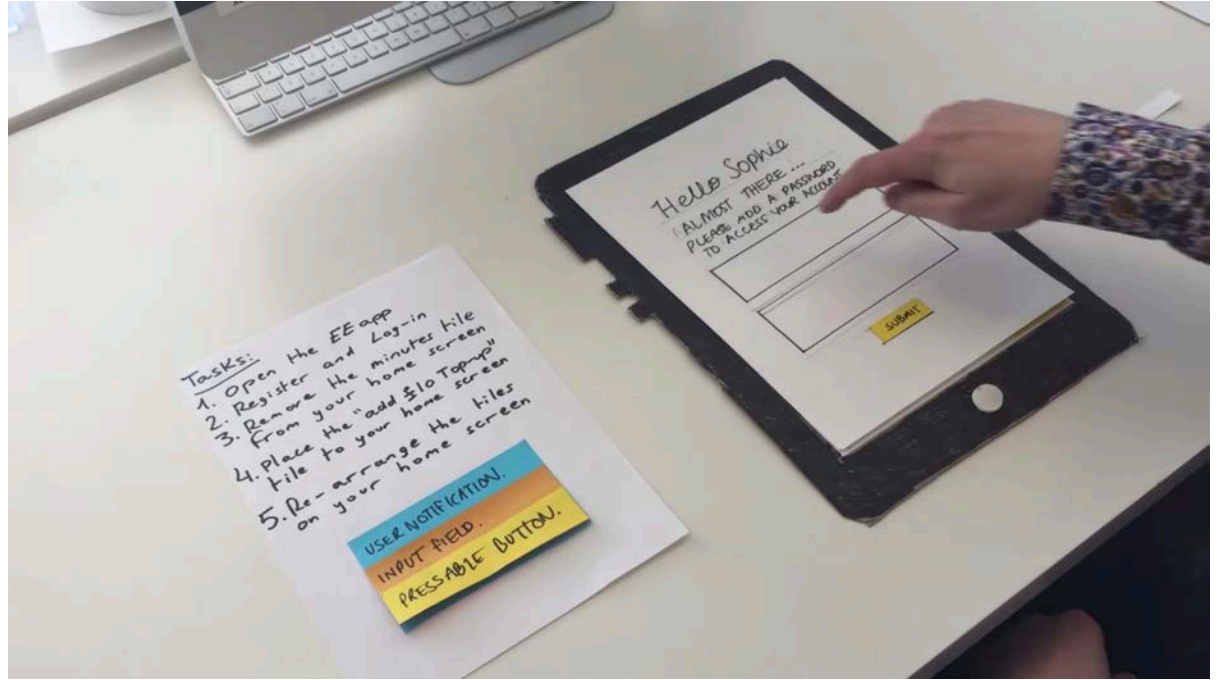 Tasks:
1. Open the EE app
2. Register and Log-in
3. Remove the minutes tile
from your home screen
4. Place the "add £10 Top-up"
tile to your home screen
5. Re-arrange the tiles
on your home screen
USER NOTIFICATION.
INPUT FIELD.
PRESSABLE BUTTON.
Hello Sophie
ALMOST THERE ...
PLEASE ADD A PASSWORD
TO ACCESS YOUR ACCOUNT
SUBMIT